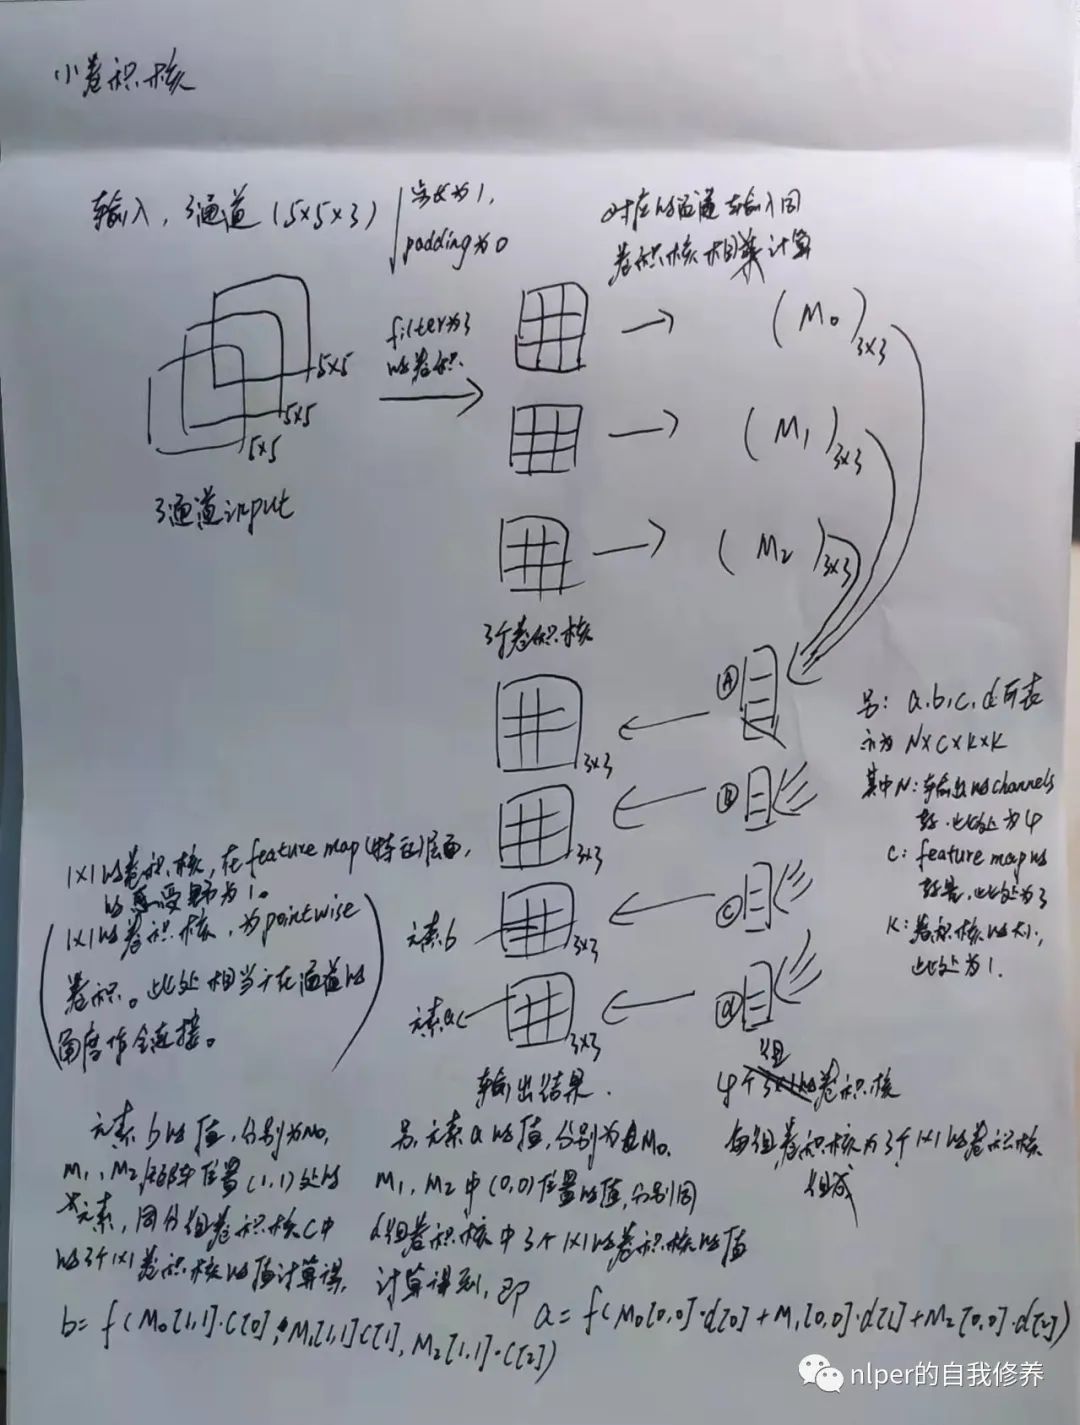 小卷积核
输入,3通道(5×5×3)
步长为1,
padding为0
对应的通道输入同
卷积核相乘计算
filter为3
的卷积
5×5
5×5
5×5
3通道input
(M0)3×3
(M1)3×3
(M2)3×3
3个卷积核
A
3×3
B
3×3
C
3×3
元素b
d
3×3
元素a
输出结果.
4个组卷积核
每组卷积核为3个1×1的卷积核
组成
另: a,b,c,d可表
示为N×C×K×K
其中N:输出的channels
数,此处为4
C: feature map的
数量,此处为3
K:卷积核的大小,
此处为1.
1×1的卷积核,在feature map(特征)层面,
的感受野为1。
(1×1的卷积核,为pointwise
卷积。此处相当于在通道的
角度作全连接。)
元素b的值,分别为M0,
M1、M2矩阵位置(1,1)处的
元素,同分组卷积核C中
的3个1×1卷积核的值计算得,
b= f(M0[1,1]·C[0], M1[1,1]C[1], M2[1,1]·C[2])
另,元素a的值,分别为M0,
M1、M2中(0,0)位置的值,分别同
d组卷积核中3个1×1的卷积核的值
计算得到,即
a= f(M0[0,0]·d[0]+M1[0,0]·d[1]+M2[0,0]·d[2])
nlper的自我修养